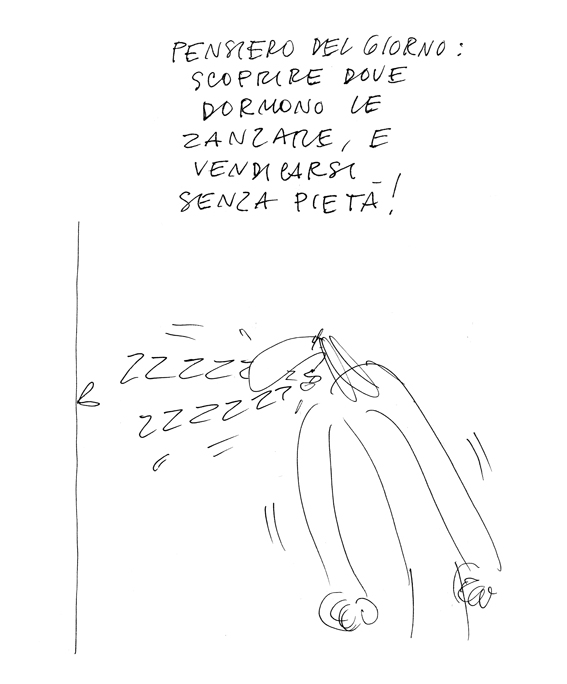 PENSIERO DEL GIORNO:
SCOPRIRE DOVE
DORMONO LE
ZANZARE, E
VENDICARSI
SENZA PIETÀ!
ZZZZZZZ
ZZZZZZZ